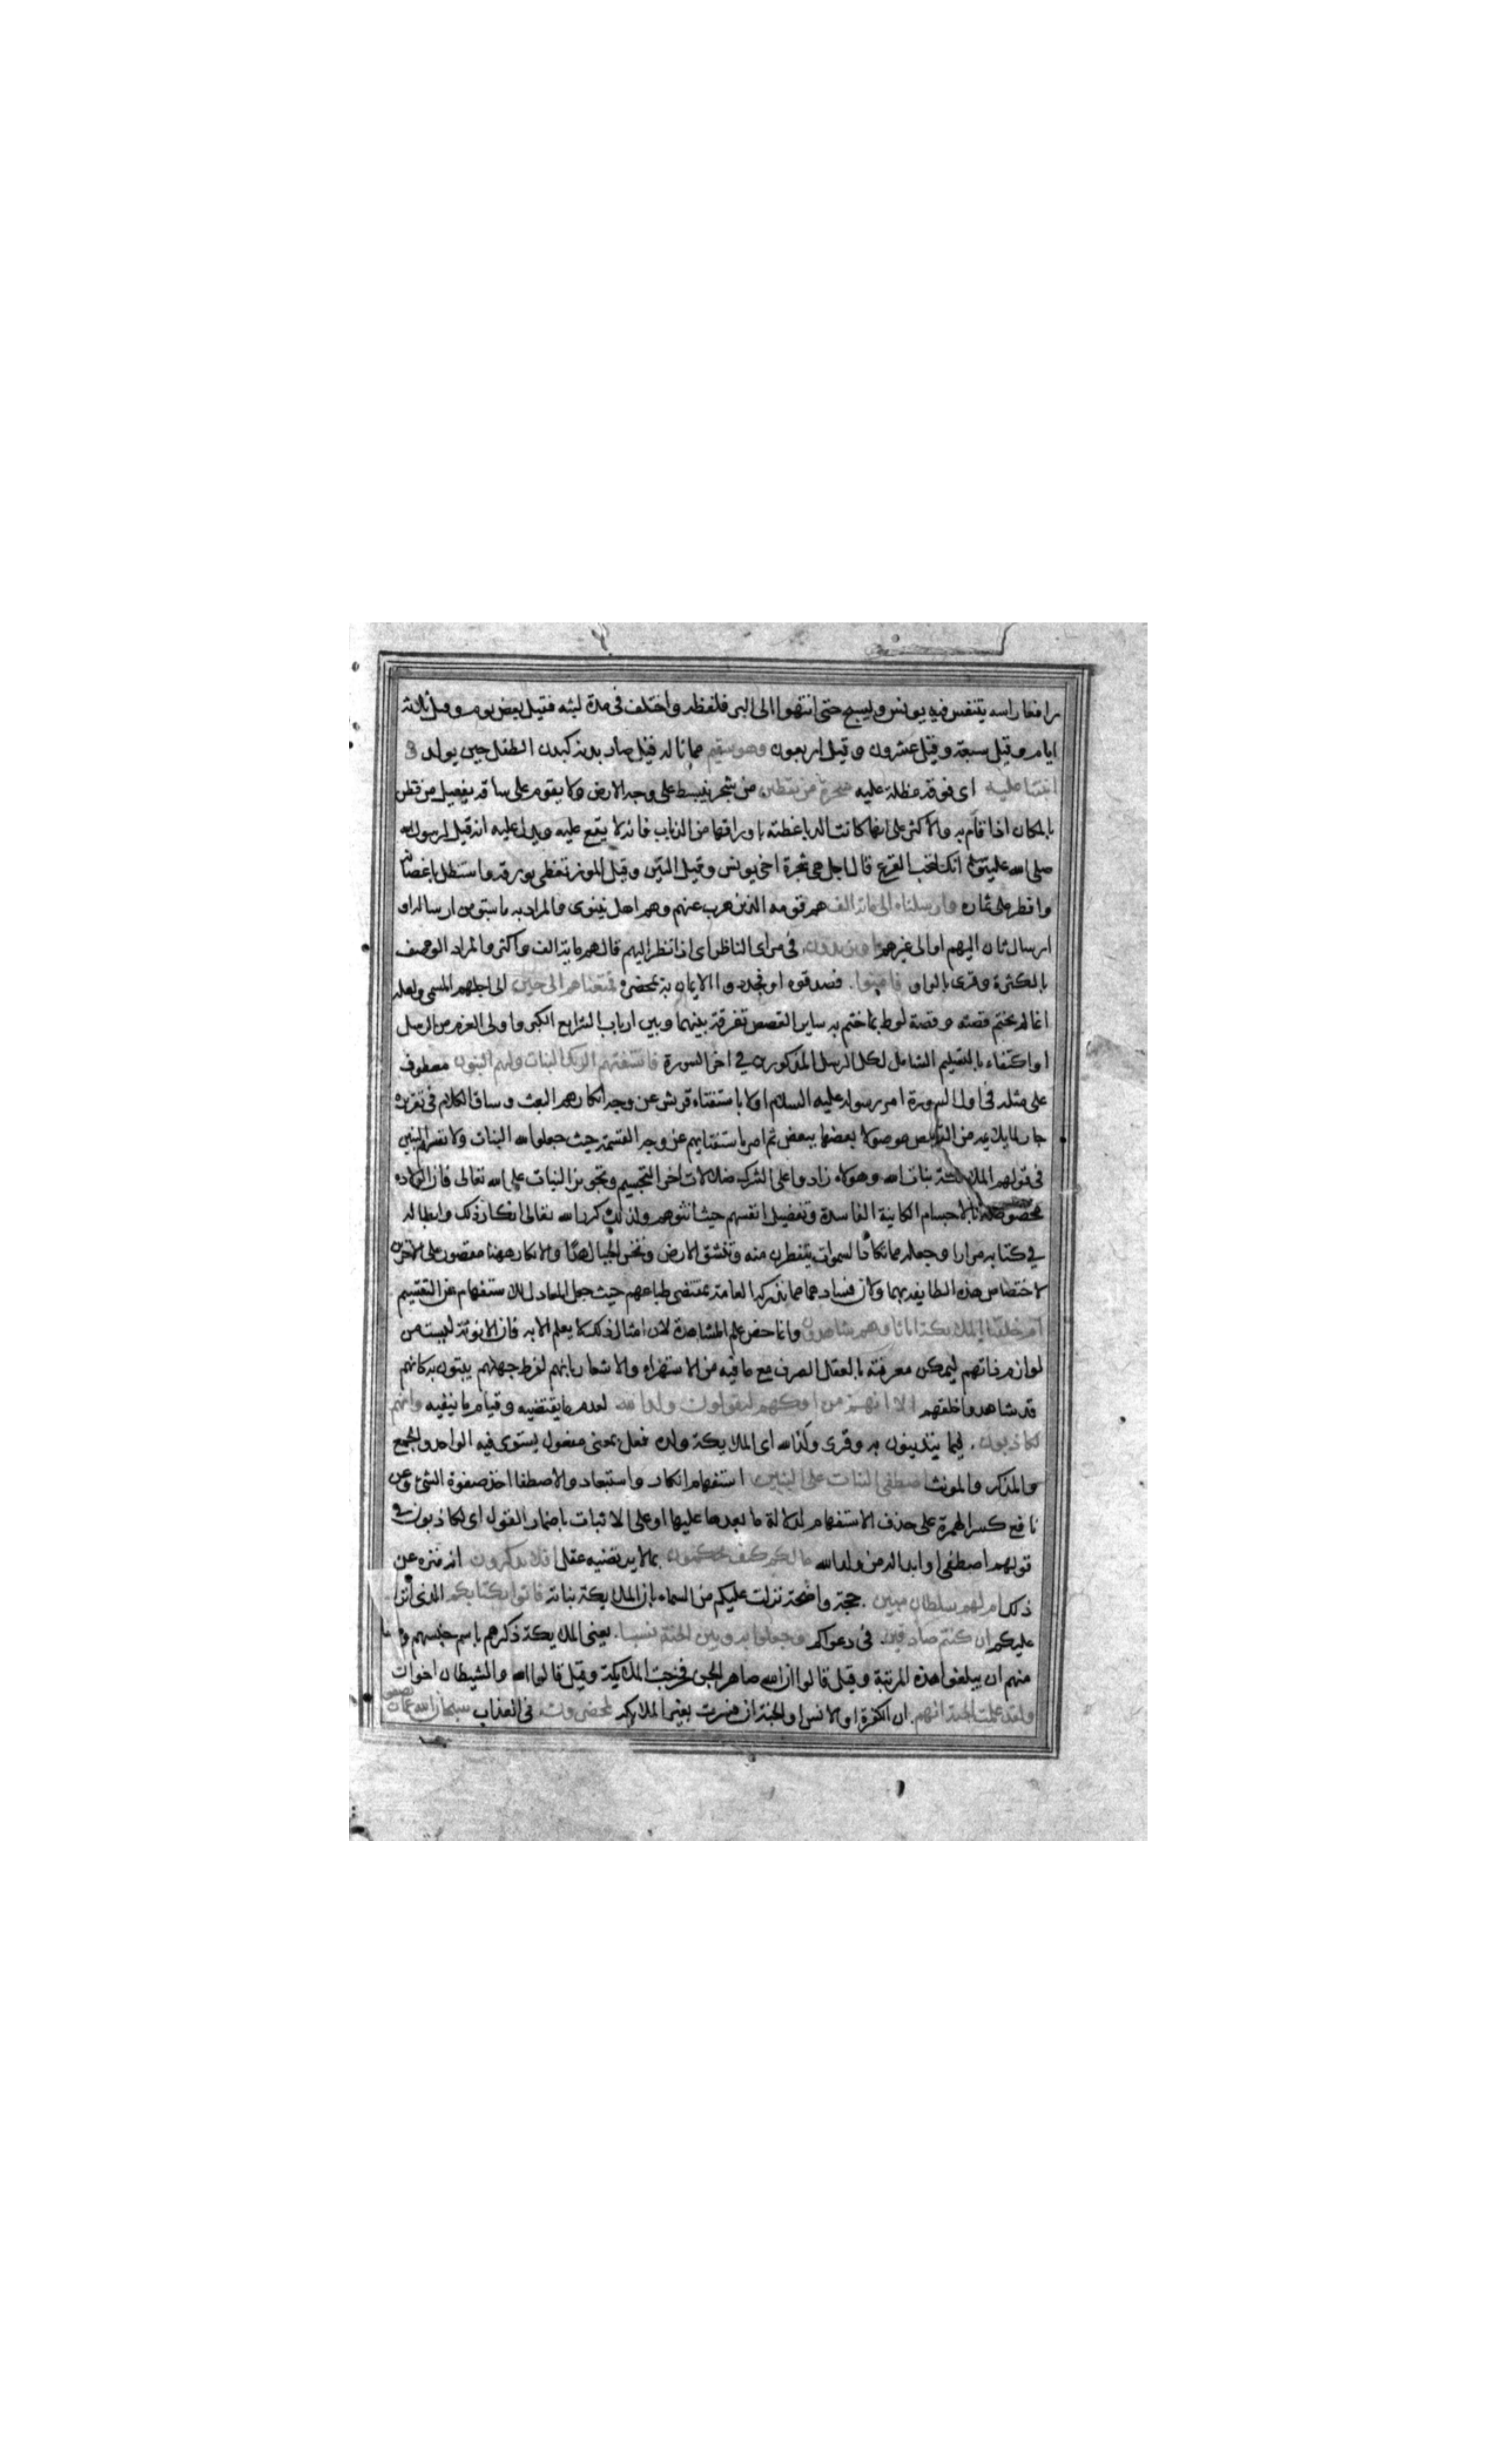 رافعا راسه يتنفس فيه يونس ويسبح حتى انتهوا الى البر فلفظه واختلف فى مدة لبثه فقيل بعض يوم وقيل ثلاثة
ايام وقيل سبعة وقيل عشرون وقيل اربعون وهو سقيم مما ناله قيل صار بدنه كبدن الطفل حين يولد و
انبتنا عليه اى فوقه مظلة عليه شجرة من يقطين من شجر ينبسط على وجه الارض ولا يقوم على ساقه يفعيل من قطن
بالمكان اذا قام به والاكثر على انها كانت الدبا غطته باوراقها من الذباب فانه لا يقع عليه ويدل عليه انه قيل لرسول الله
صلى الله عليه وسلم انك لتحب القرع قال اجل هى شجرة اخى يونس وقيل التين وقيل الموز تغطى بورقه واستظل باغصانه
وافطر على ثماره وارسلناه الى مائة الف هم قومه الذين هرب عنهم وهم اهل نينوى والمراد به ما سبق من ارساله او
ارسال ثان اليهم او الى غيرهم او يزيدون فى مراى الناظر اى اذا نظر اليهم قال هم ماية الف واكثر والمراد الوصف
بالكثرة وقرى بالواو فامنوا فصدقوه او فجددوا الايمان به بمحضره فمتعناهم الى حين الى اجلهم المسمى ولعله
انما لم يختم قصته وقصة لوط بما ختم به ساير القصص تفرقة بينهما وبين ارباب الشرايع الكبر واولى العزم من الرسل
او اكتفاء بالتسليم الشامل لكل الرسل المذكورين في اخر السورة فاستفتهم الربك البنات ولهم البنون معطوف
على مثله فى اول السورة امر رسوله عليه السلام اولا باستفتاء قريش عن وجه انكارهم البعث وساق الكلام فى تقريره
جارا لما يلايمه من القصص موصولا بعضها ببعض ثم امر باستفتايهم عن وجه القسمة حيث جعلوا لله البنات ولانفسهم البنين
فى قولهم الملايكة بنات الله وهولاء زادوا على الشرك ضلالات اخر التجسيم وتجويز البنات على الله تعالى فان الولاده
مخصوصة بالاجسام الكاينة الفاسدة وتفضيل انفسهم حيث انثوهم ولذلك كرر الله تعالى انكار ذلك وابطاله
في كتابه مرارا وجعله مما تكاد السموات يتفطرن منه وتنشق الارض وتخر الجبال هدا والانكار ههنا مقصور على الاخرين
لاختصاص هذه الطايفة بهما ولان فسادهما مما تدركه العامة بمقتضى طباعهم حيث جعل المعادل للاستفهام عن التقسيم
ام خلقنا الملايكة اناثا وهم شاهدون وانما خص علم المشاهدة لان امثال ذلك لا يعلم الا به فان الانوثة ليست من
لوازم ذاتهم ليمكن معرفته بالعقل الصرف مع ما فيه من الاستهزاء والاشعار بانهم لفرط جهلهم يبتون به كانهم
قد شاهدوا خلقهم الا انهم من افكهم ليقولون ولد الله لعدم ما يقتضيه وقيام ما ينفيه وانهم
لكاذبون فيما يتدينون به وقرى ولد الله اى الملايكة ولده فعل بمعنى مفعول يستوى فيه الواحد والجمع
والمذكر والمونث اصطفى البنات على البنين استفهام انكار واستبعاد والاصطفا اخذ صفوة الشئ وعن
نافع كسر الهمزة على حذف الاستفهام لدلالة ما بعدها عليها او على الاثبات باضمار القول اى لكاذبون في
قولهم اصطفى او ابداله من ولد الله ما لكم كيف تحكمون بما لا يرتضيه عقل افلا تذكرون انه منزه عن
ذلك ام لهم سلطان مبين حجة واضحة نزلت عليكم من السماء بان الملايكة بناته فاتوا بكتابكم الذى انزل
عليكم ان كنتم صادقين فى دعواكم وجعلوا بينه وبين الجنة نسبا يعنى الملايكة ذكرهم باسم جنسهم وضعا
منهم ان يبلغوا هذه المرتبة وقيل قالوا ان الله صاهر الجن فخرجت الملايكة وقيل قالوا الله والشيطان اخوان
ولقد علمت الجنة انهم ان الكفرة او الانس او الجنة ان فسرت بغير الملايكة لمحضرون فى العذاب سبحان الله عما يصفون